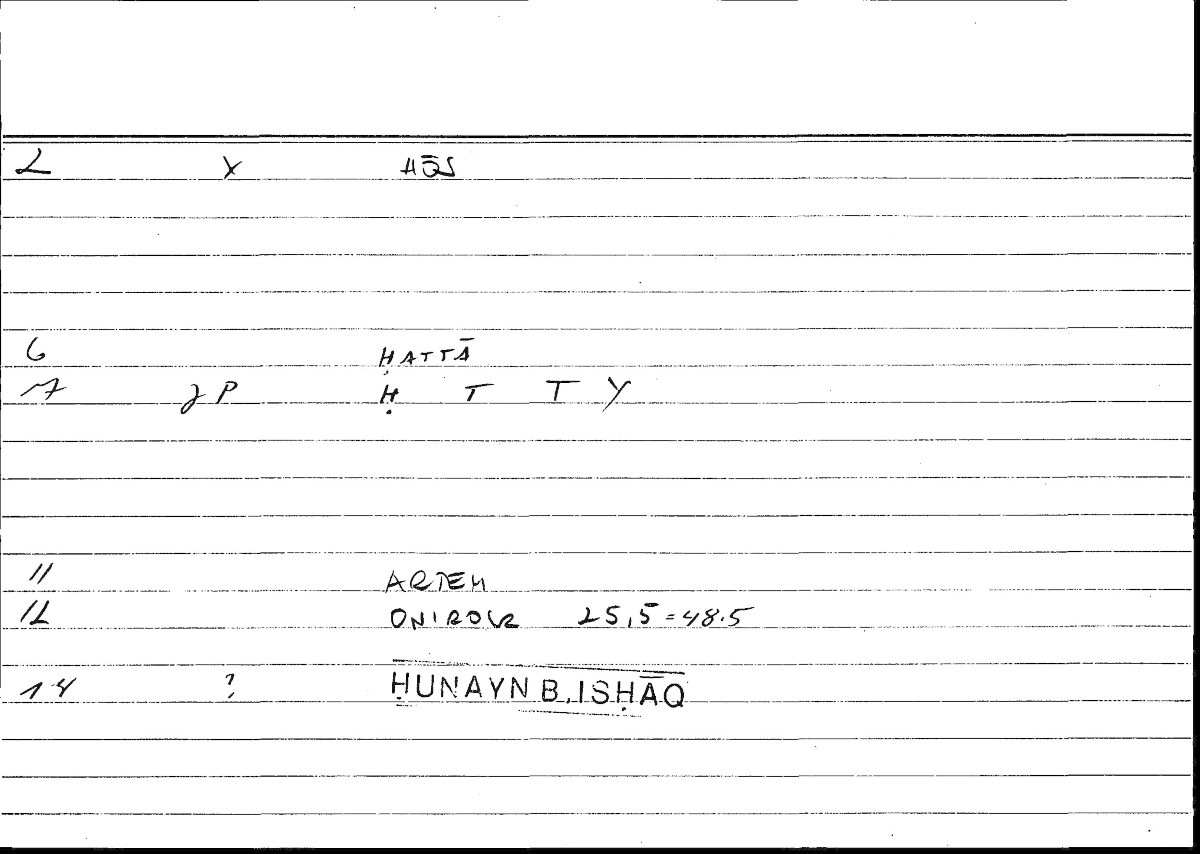 2 X HQS
6 ḤATTĀ
7 JP Ḥ T T Y
11 ARTEM
12 ONIROCR 25,5=48.5
14 ? ḤUNAYN B. ISḤĀQ